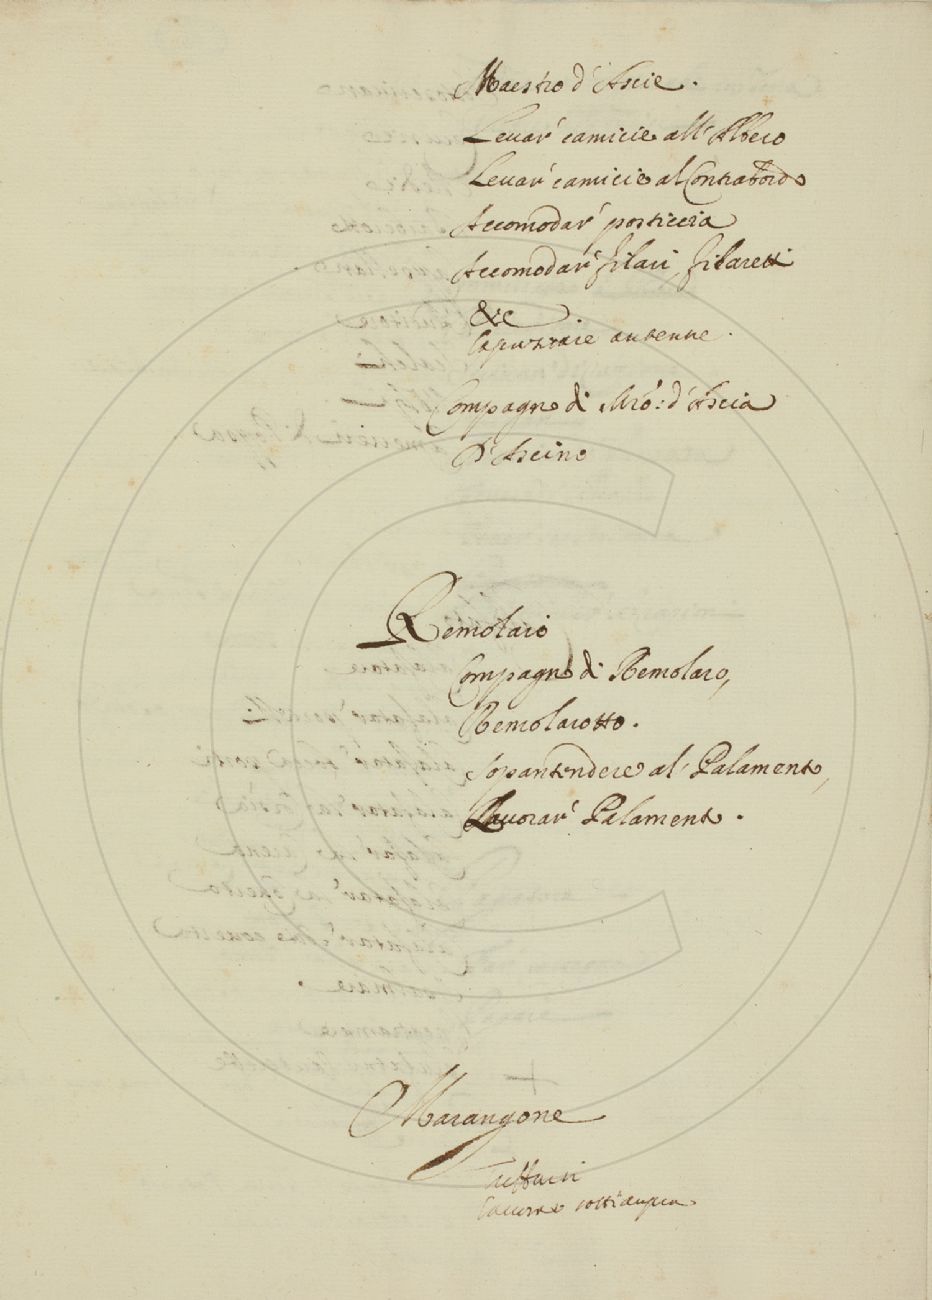 Maestro d'Ascie.
Levar' camicie all'Albero
Levar' camicie al Contrabordo
Accomodar' posticcia
Accomodar' filari, filaretti
&c
Capuzzare antenne.
Compagno di Mro: d'Ascia
D'Ascino
Remolaio
Compagno di Remolaro,
Remolarotto.
Sopantendere al Palamento,
Lavorar' Palamento.
Marangone
Tuffarsi
sott'acqua